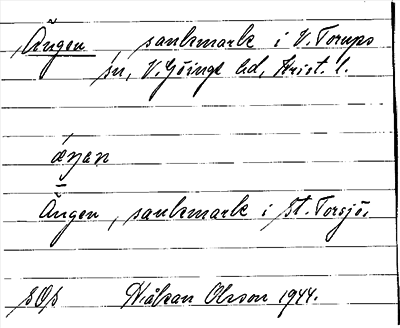 Ängen, sankmark i V. Torups
sn, V. Göinge hd, Krist. l.
æŋan
Ängen, sankmark i St. Torsjö.
Håkan Olsson 1944.